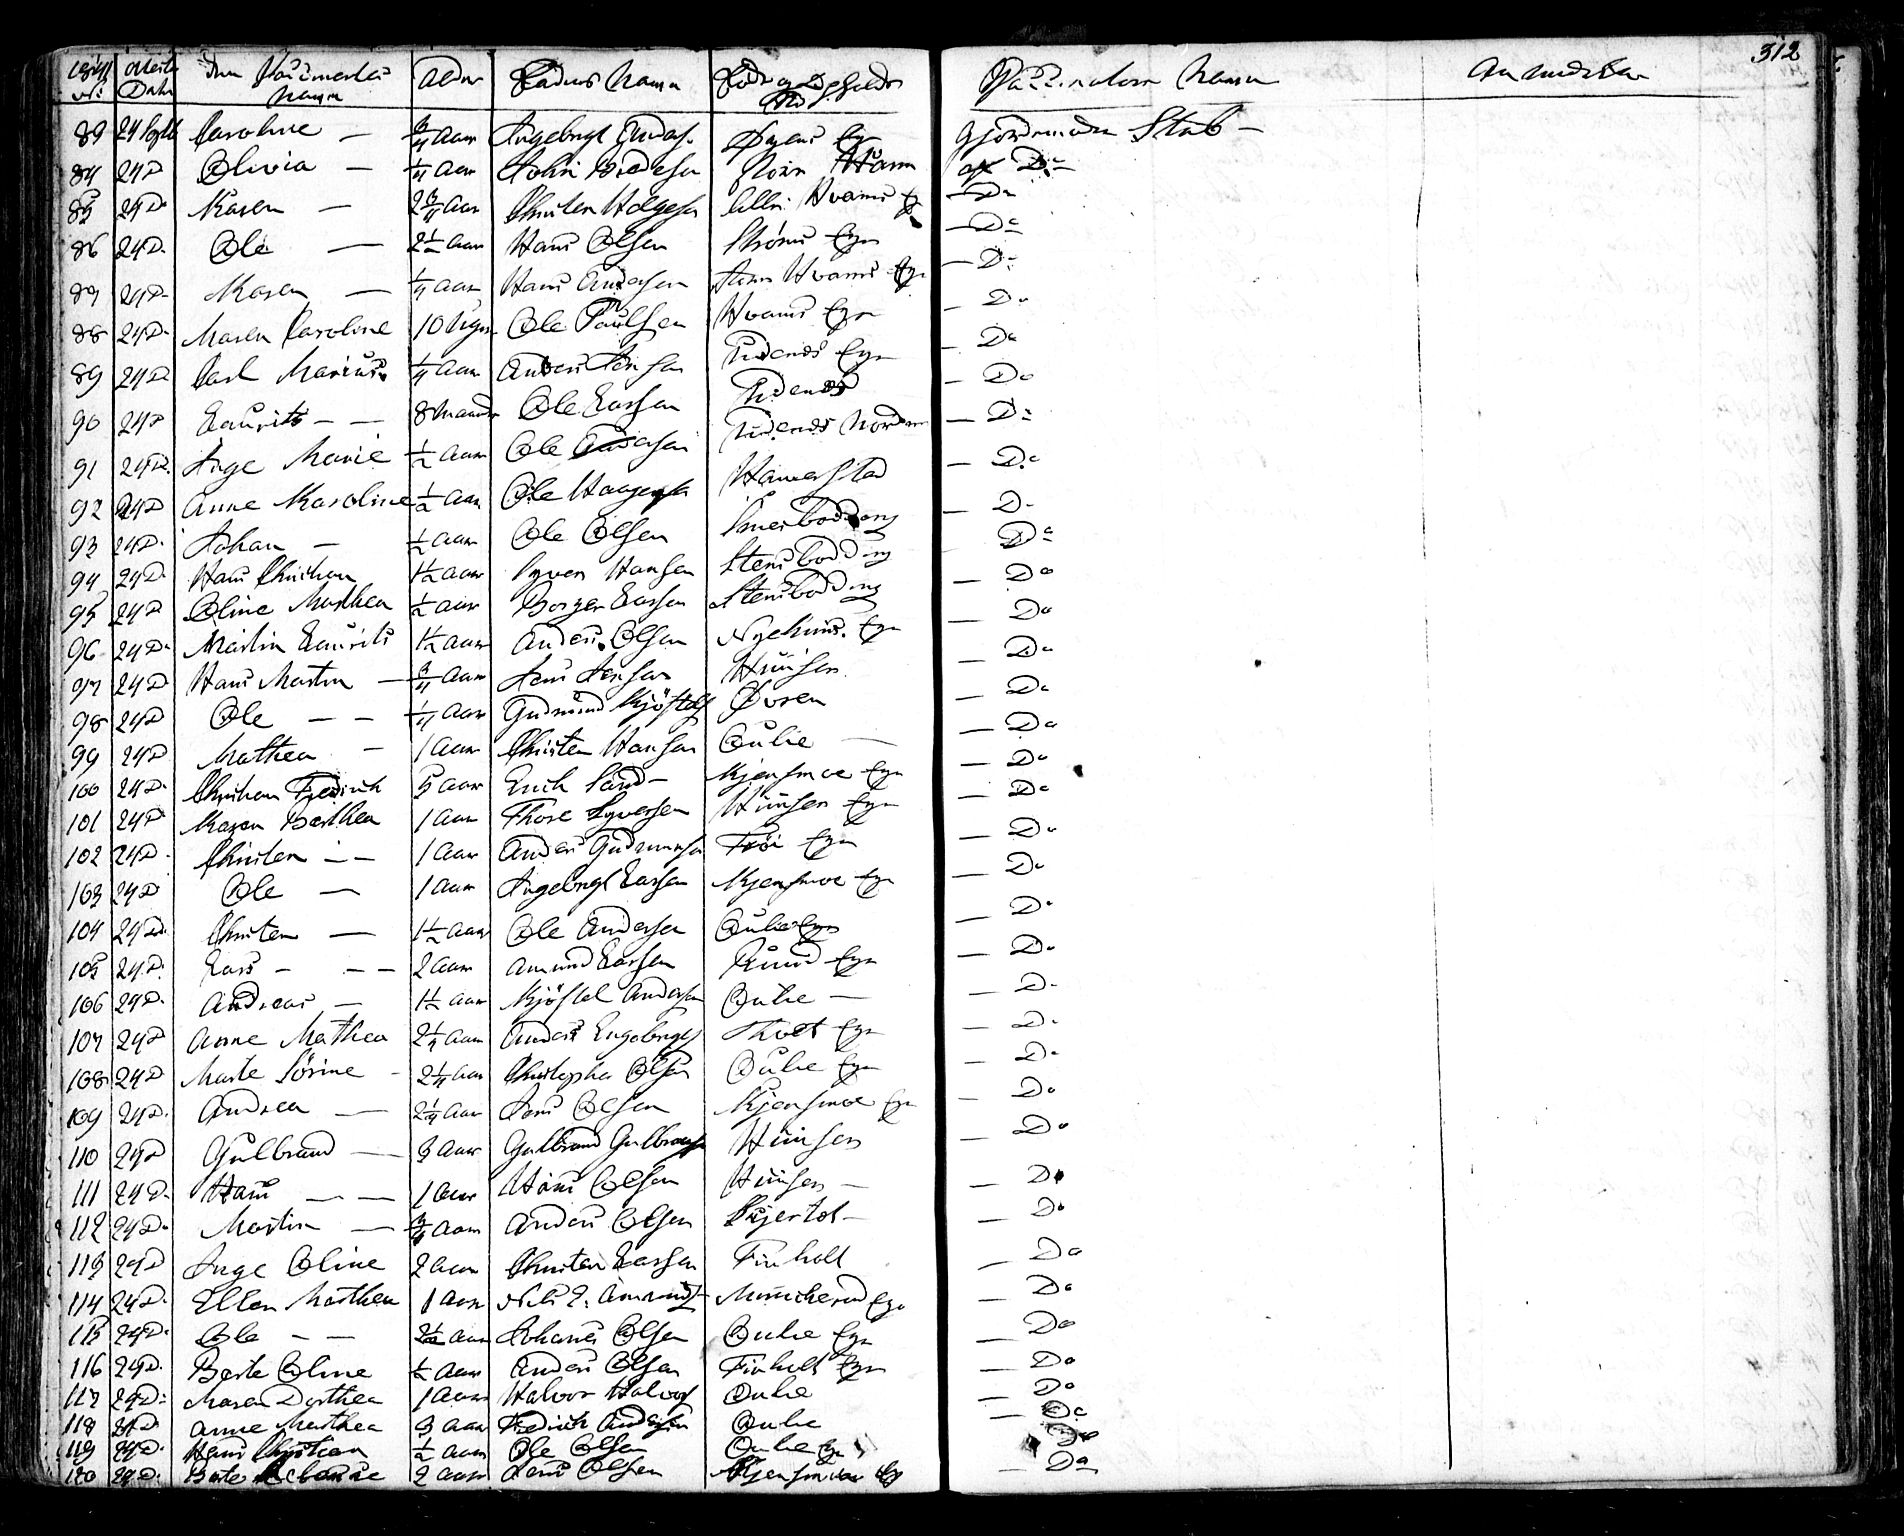 312
1841 No: | Meste Datu | Den Vaccineredes Navn | Alder | Fadres Navn | Fød og Opholds Sted | Vaccinators Navn | Anmærkn
83 24 Septb Caroline — 3/4 Aar Ingebregt Anders. Eye Gjordemoder Stub —
84 24 D Olivia — 1/4 Aar John Nordre Hvam af Do
85 24 Do Karen — 2 3/4 Aar Christen Helgesen Hvams Eye — Do
86 24 D. Ole — 2 1/2 Aar Hans Olsen Strøms Eye — Do
87 24 D. Karen — 1/4 Aar Hans Andersen Hvams Eye — Do
88 24 D. Maren Caroline 10 Uger Ole Paulsen Hvams Eye — Do
89 24 D Carl Marius 1/4 Aar Anders Jensen Eye — Do
90 24 D Laurits — — 8 Maaned Ole Larsen — Do
91 24 D. Inge Marie 1/2 Aar Ole Andersen Nordre — Do
92 24 D Anne Karoline 1/2 Aar Ole Haagens Hamerstad — Do
93 24 D. Johan — 1/2 Aar Ole Olsen — D.
94 24 D. Hans Christian 1 1/2 Aar Syver Hansen Stensbodding Do
95 24 D Oline Marthea 1/2 Aar Borger Larsen Stensbodding — Do
96 24 D. Martin Laurits 1 1/2 Aar Anders Olsen Eye — Do
97 24 D Hans Martin — 3/4 Aar Jens Jensen Huuser — Do
98 24 D Ole — — 1/4 Aar Gudmund Kjøstels Øvren — Do
99 24 D Mathea — 1 Aar Christen Hansen Oulie — — Do
100 24 D. Christian Fredrich 5 Aar Erich Sand — Kjensmoe Eye — Do
101 24 D Karen Berthea 1 Aar Thore Syversen Huuser Eye — Do
102 24 D. Christen — — 1 Aar Anders Gudmunds Eye — Do
103 24 D Ole — 1 Aar Ingebregt Larsen Kjensmoe Eye — Do
104 24 D. Christen — 1 1/2 Aar Ole Andersen Oulie Eye — Do
105 24 D. Lars — — — 2 Aar Amund Larsen Ruud Eye — Do
106 24 D. Andreas — 1 1/2 Aar Kjøstel Andersen Oulie — — Do
107 24 D Anne Mathea 2 1/4 Aar Anders Engebregts Thvet Eye — D.
108 24 D Marte Sørine — 2 1/4 Aar Christopher Olsen Oulie Eye — Do
109 24 D. Andrea — 2 1/4 Aar Jens Olsen Kjensmoe Eye — Do
110 24 D Gulbrand — 3 Aar Gulbrand Gulbrands Huuser — Do
111 24 D. Hans — — 1 Aar Hans Olsen Huuser — — Do
112 24 D. Martin — 3/4 Aar Anders Olsen — — Do
113 24 D Inge Oline 2 Aar Christen Larsen Finholt — Do
114 24 D. Ellen Marthea 1 Aar Nels E. Amunds Munkerud Eye — Do
115 24 D. Ole — — 2 1/2 Aar Johanes Olsen Oulie Eye — Do
116 24 D. Berte Oline 1/2 Aar Anders Olsen Finholt Eye — Do
117 24 D. Maren Dorthea 1 Aar Halvor Halvors Oulie — Do
118 24 D Anne Marthea 3 Aar Fredrich Andersen Oulie — Do
119 24 D. Hans Christian 1/2 Aar Ole Olsen Oulie Eye Do
120 24 D. Berte 2 Aar Jens Olsen Kjensmoe Eye — Do